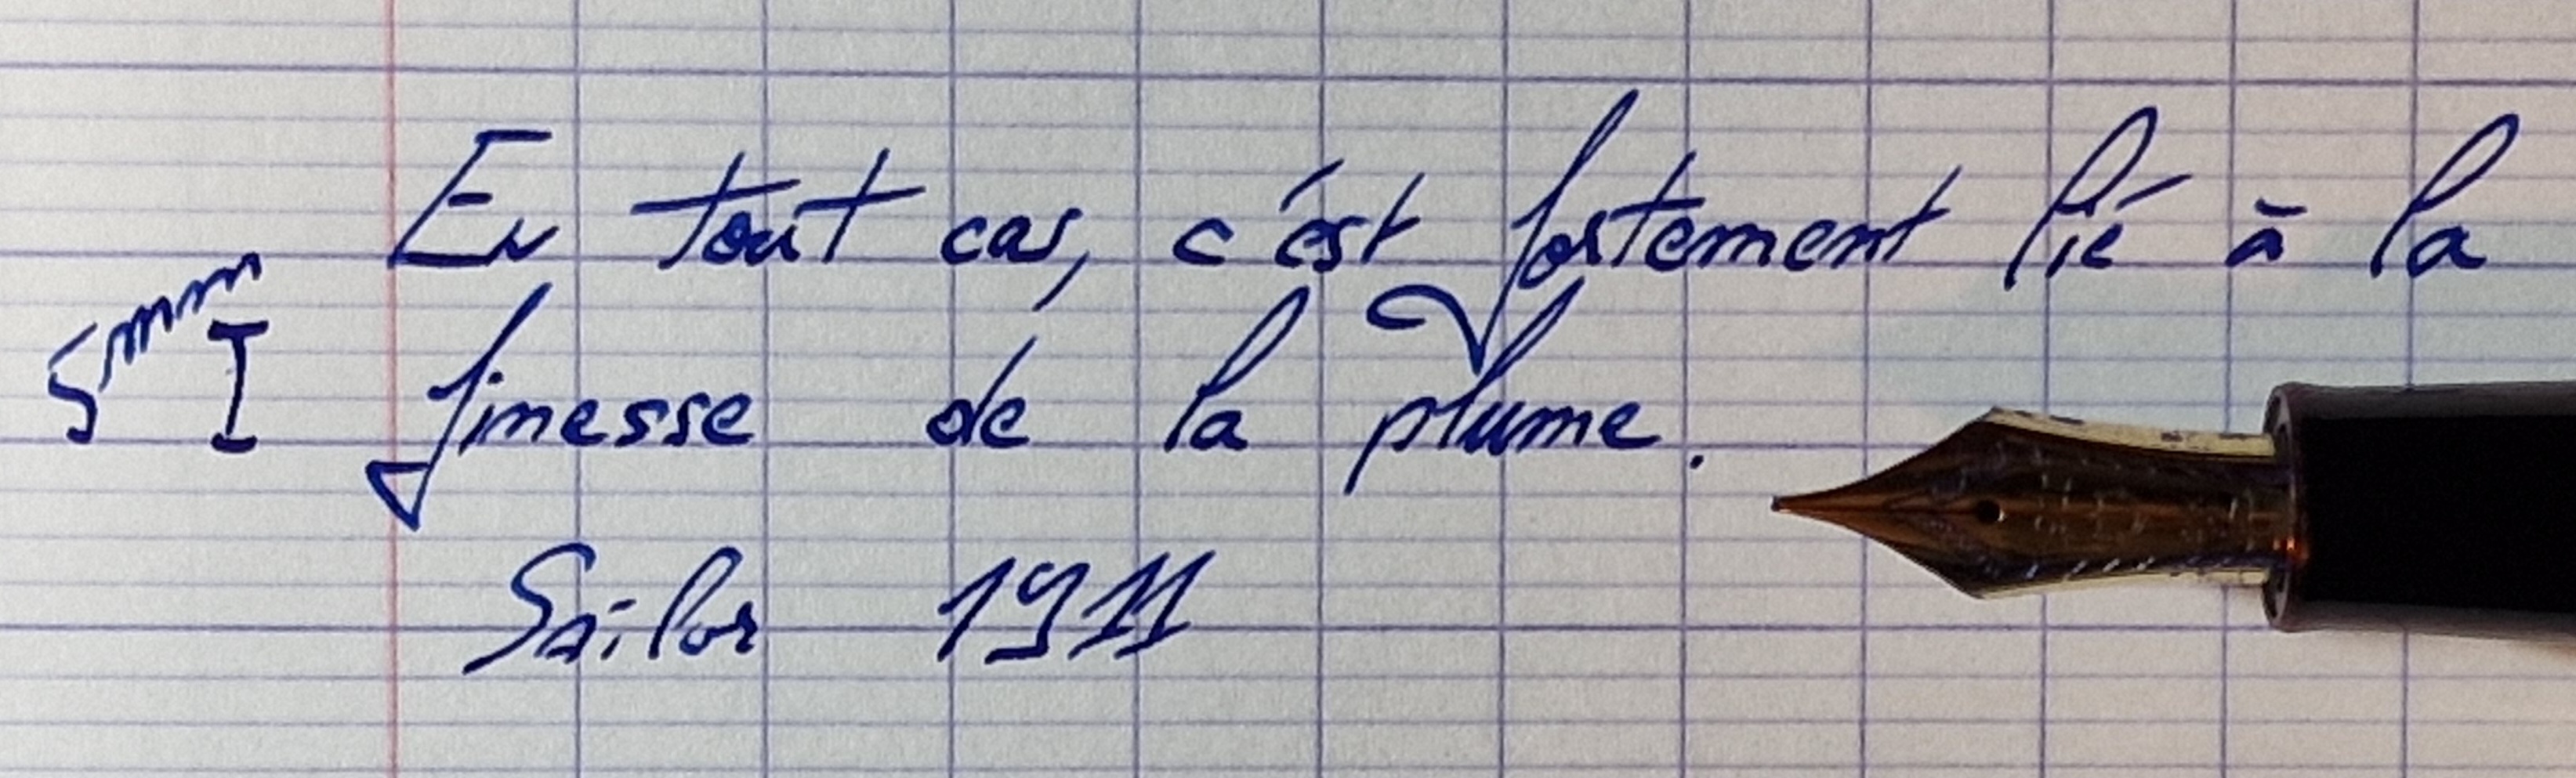 En tout cas, c'est fortement lié à la
5mm
finesse de la plume.
Sailor 1911